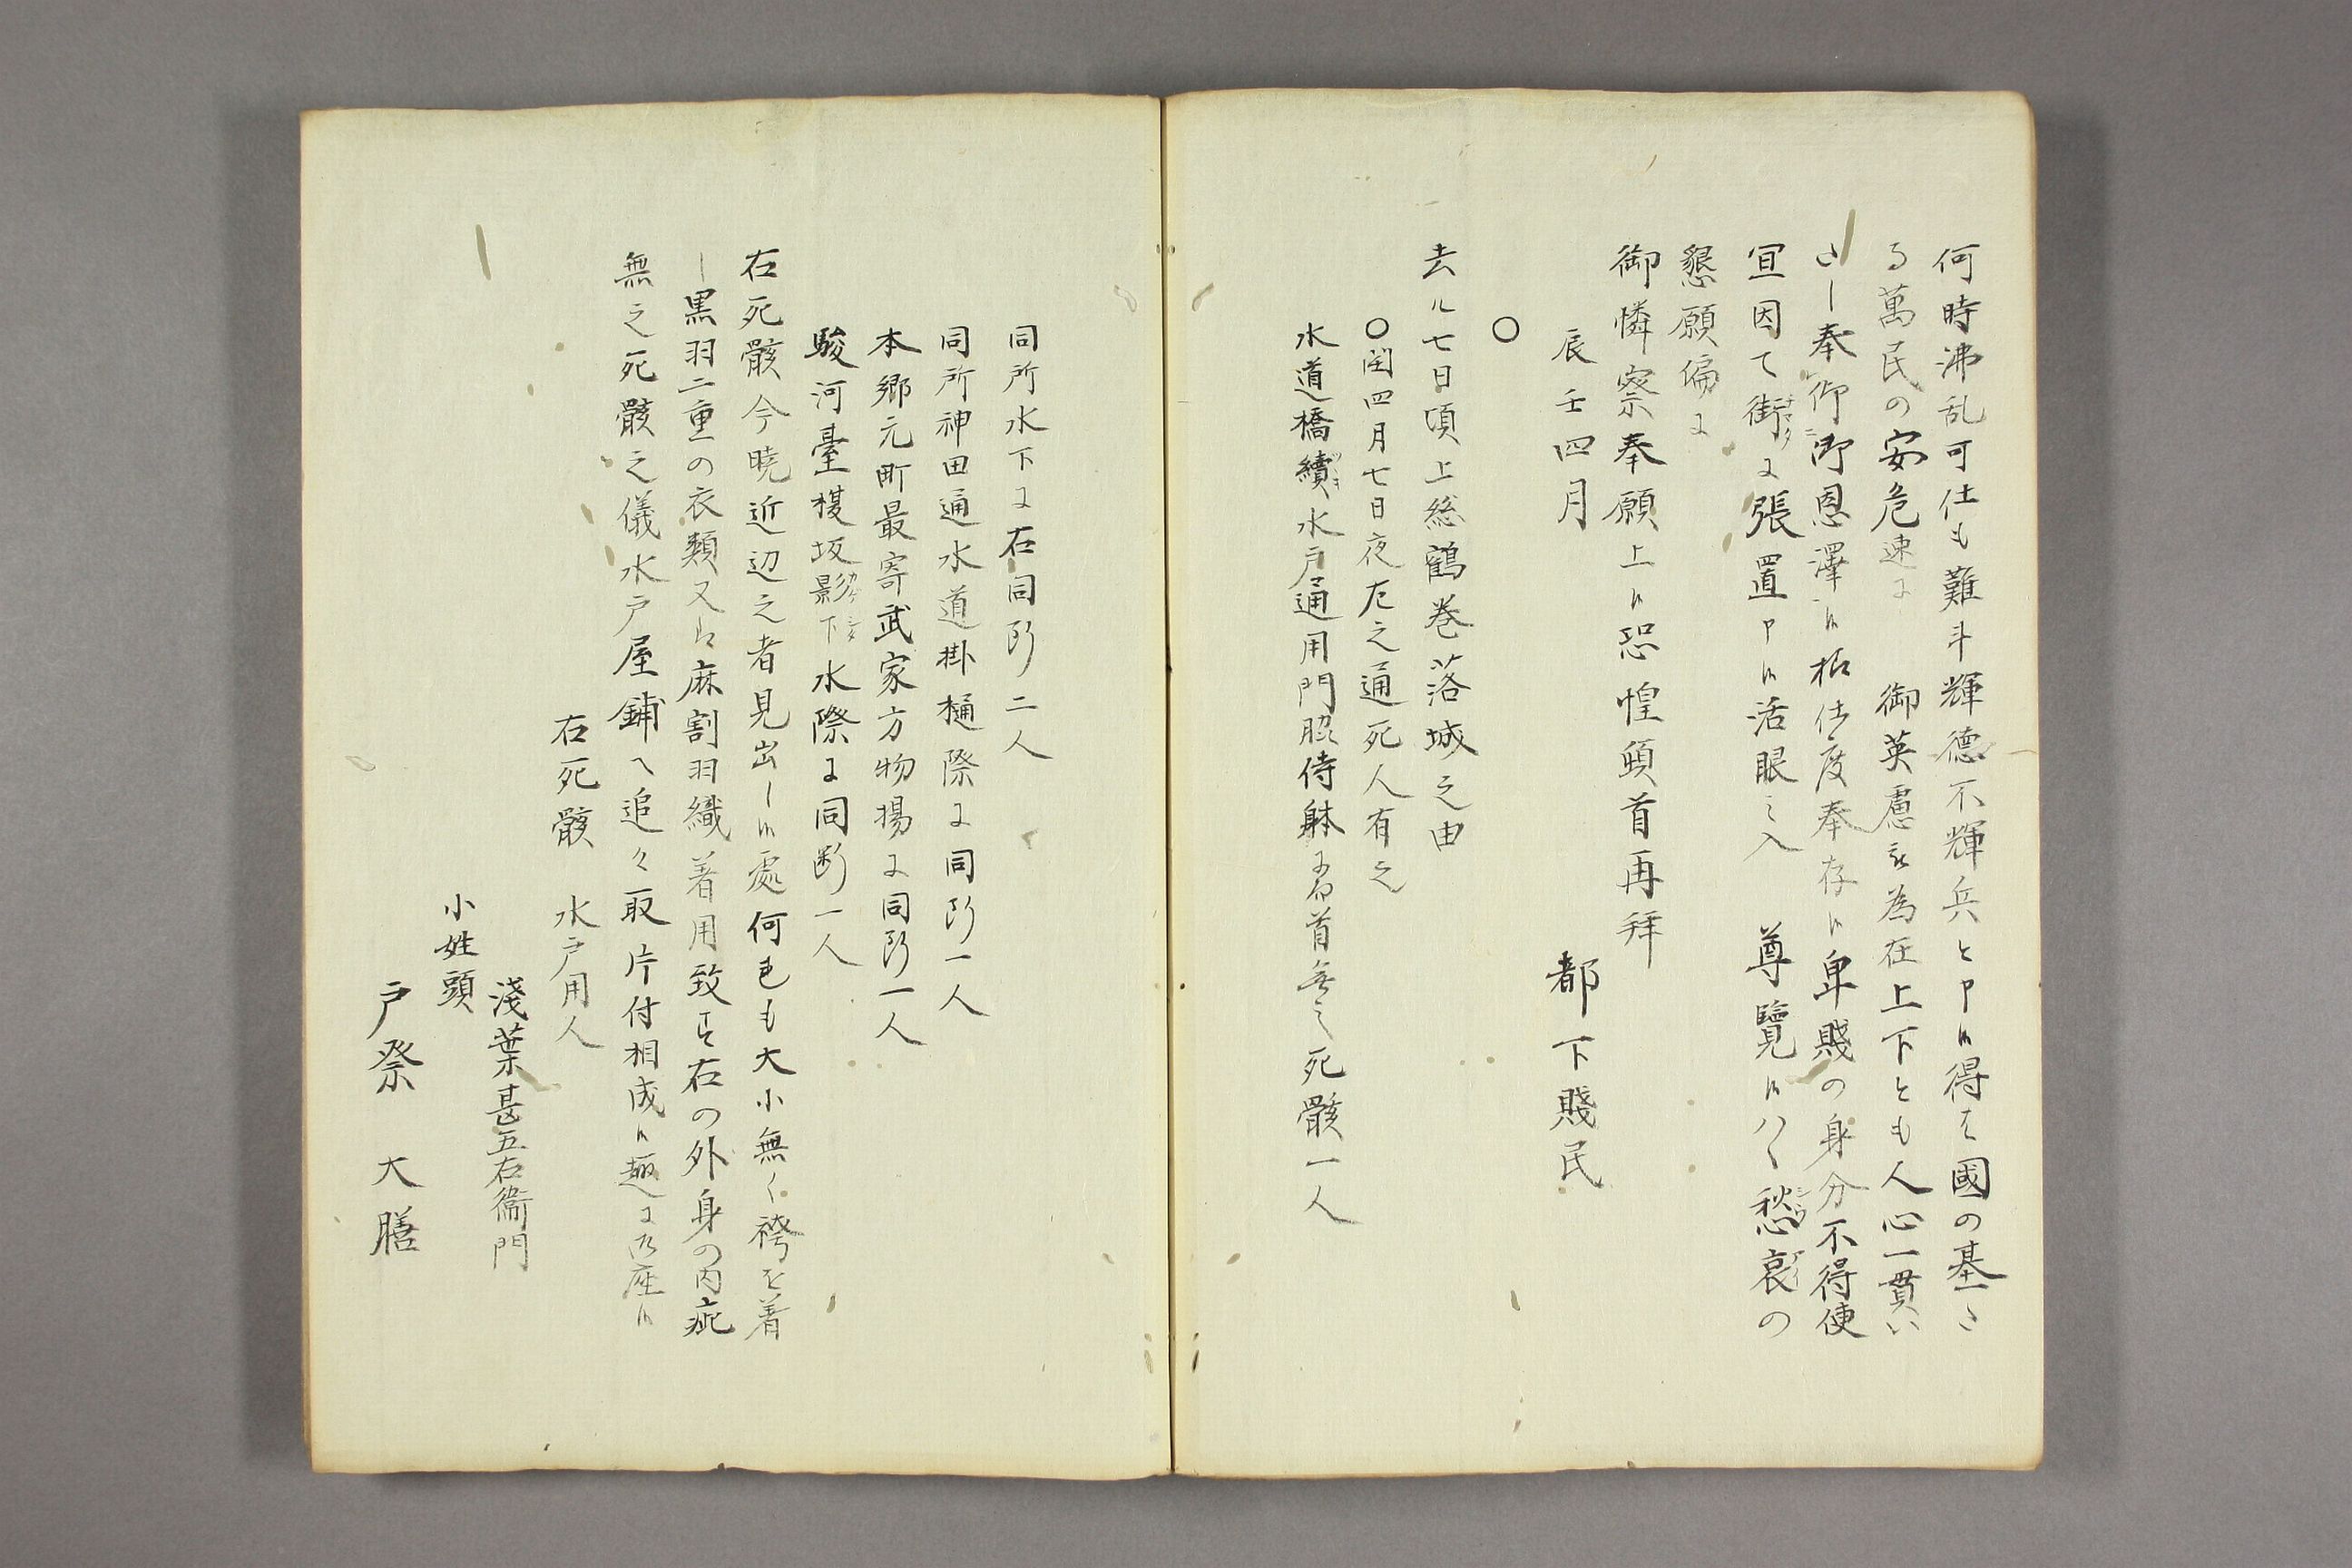 何時沸乱可仕も難斗輝徳不輝兵と申候得は國の基さ
る萬民の安危速に 御英慮被為在上下とも人心一貫い
たし奉仰御恩澤候様仕度奉存候卑賤の身分不得便
宜因て街に張置申候活眼之入 尊覽候ハヽ愁哀の
懇願偏に
御憐察奉願上候恐惶頓首再拜
辰壬四月
都下賤民
○
去ル七日頃上総鶴巻落城之由
○閏四月七日夜左之通死人有之
水道橋續水戸通用門脇侍躰に而首無之死骸一人
同所水下に右同断二人
同所神田通水道掛樋際に同断一人
本郷元町最寄武家方物揚に同断一人
駿河臺榎坂影下水際に同断一人
右死骸今暁近辺之者見出し候處何も大小無く袴を着
し黒羽二重の衣類又は麻割羽織着用致す右の外身の内疵
無之死骸之儀水戸屋鋪へ追々取片付相成候趣に御座候
右死骸 水戸用人
淺葉甚五右衞門
小姓頭
戸祭 大膳